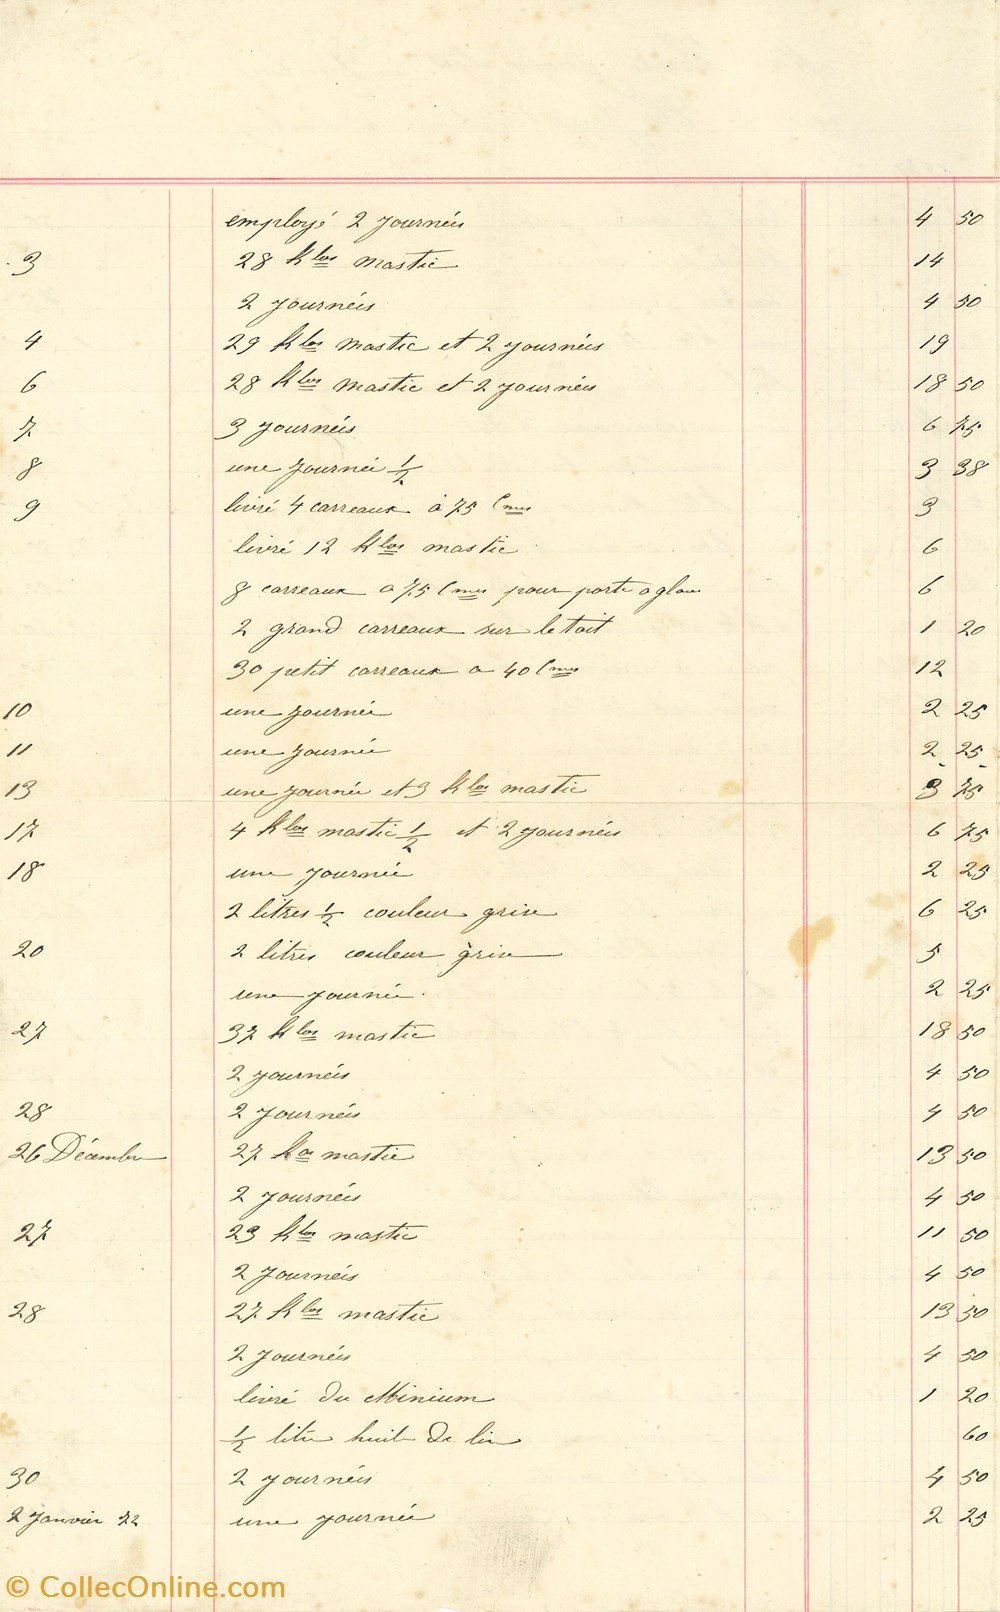 employé 2 journéis 4 50
3 28 Klos mastic 14
2 journéis 4 50
4 29 Klos mastic et 2 journéis 19
6 28 Klos mastic et 2 journéis 18 50
7 3 journéis 6 75
8 une journéi 1/2 3 38
9 livré 4 carreaux à 75 Cmes 3
livré 12 Klos mastic 6
8 carreaux a 75 Cmes pour porte a glau 6
2 grand carreaux sur le toit 1 20
30 petit carreaux a 40 Cmes 12
10 une journéi 2 25
11 une journéi 2 25
13 une journéi et 3 Klos mastic 3 75
17 4 Klos mastic 1/2 et 2 journéis 6 75
18 une journéi 2 25
2 litres 1/2 couleur grise 6 25
20 2 litres couleur grise 5
une journéi. 2 25
27 37 Klos mastic 18 50
2 journéis 4 50
28 2 journéis 4 50
26 Décembre 27 Kos mastic 13 50
2 journéis 4 50
27 23 Klos mastic 11 50
2 journéis 4 50
28 27 Klos mastic 13 50
2 journéis 4 50
livré du Minium 1 20
1/2 litre huile de lin 60
30 2 journéis 4 50
2 Janvier 72 une journéi 2 25
© CollecOnline.com